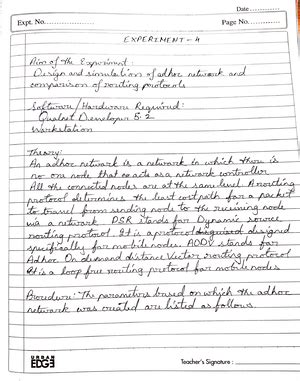 Date ............
Expt. No. Page No. ............
EXPERIMENT - 4
Aim of the Experiment :
Design and simulation of adhoc network and
comparison of routing protocols
Software/Hardware Required:
Qualnet Developer 5.2
Workstation
Theory:
An adhoc network is a network in which there is
no one node that acts as a network controller
All the connected nodes are at the same level. A routing
protocol determines the least cost path for a packet
to travel from sending node to the receiving node
via a network. DSR stands for Dynamic source
routing protocol. It is a protocol designed
specifically for mobile nodes. AODV stands for
Adhoc On demand distance Vector routing protocol
It is a loop free routing protocol for mobile nodes
Procedure: The parameters based on which the adhoc
network was created are listed as follows
URBAN
EDGE Teacher's Signature : ____________